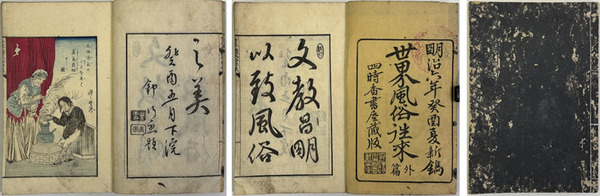 明治六年癸酉夏新鐫
世界風俗往来 外篇
四時香書屋蔵版
文教昌明
以致風俗
之美
癸酉五月下浣